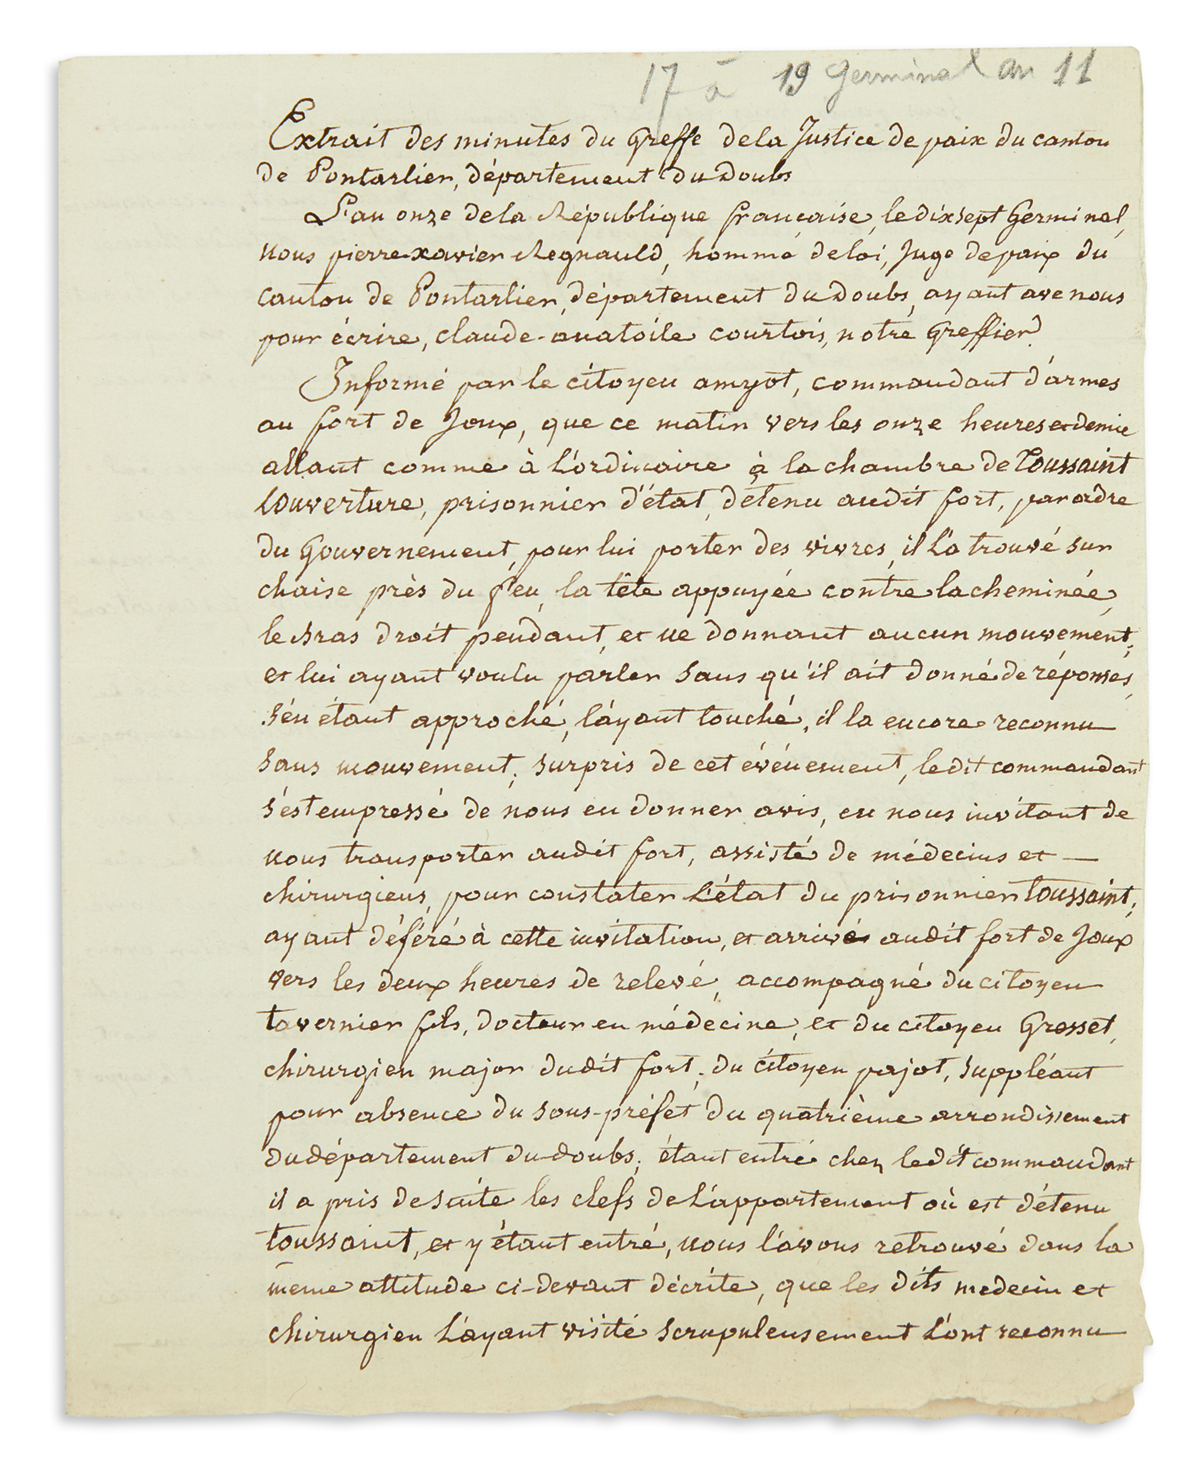 17 à 19 Germinal an 11
Extrait des minutes du Greffe de la Justice de paix du canton
de Pontarlier, département du Doubs
L'an onze de la République française, le dix sept Germinal,
nous pierre-xavier Regnauld, homme de loi, Juge de paix du
canton de Pontarlier, département du Doubs, ayant avec nous
pour écrire, claude-anatoile courtois, notre Greffier.
Informé par le citoyen amyot, commandant d'armes
au fort de Joux, que ce matin vers les onze heures et demie
allant comme à l'ordinaire à la chambre de Toussaint
Louverture, prisonnier d'état, détenu audit fort, par ordre
du Gouvernement, pour lui porter des vivres, il l'a trouvé sur
chaise près du feu, la tête appuyée contre la cheminée,
le bras droit pendant, et ne donnant aucun mouvement;
et lui ayant voulu parler sans qu'il ait donné de réponses,
s'en étant approché, l'ayant touché, il la encore reconnu
sans mouvement; surpris de cet événement, le dit commandant
s'est empressé de nous en donner avis, en nous invitant de
nous transporter audit fort, assisté de médecins et —
chirurgiens, pour constater l'état du prisonnier Toussaint;
ayant déféré à cette invitation, et arrivés audit fort de Joux
vers les deux heures de relevé, accompagné du citoyen
tavernier fils, docteur en médecine, et du citoyen Gresset,
chirurgien major dudit fort; du citoyen pajot, suppléant
pour absence du sous-préfet du quatrième arrondissement
du département du doubs; étant entré chez ledit commandant
il a pris de suite les clefs de l'appartement où est détenu
toussaint, et y étant entré, nous l'avons retrouvé dans la
même attitude ci-devant décrite, que les dits medecin et
chirurgien l'ayant visité scrupuleusement l'ont reconnu